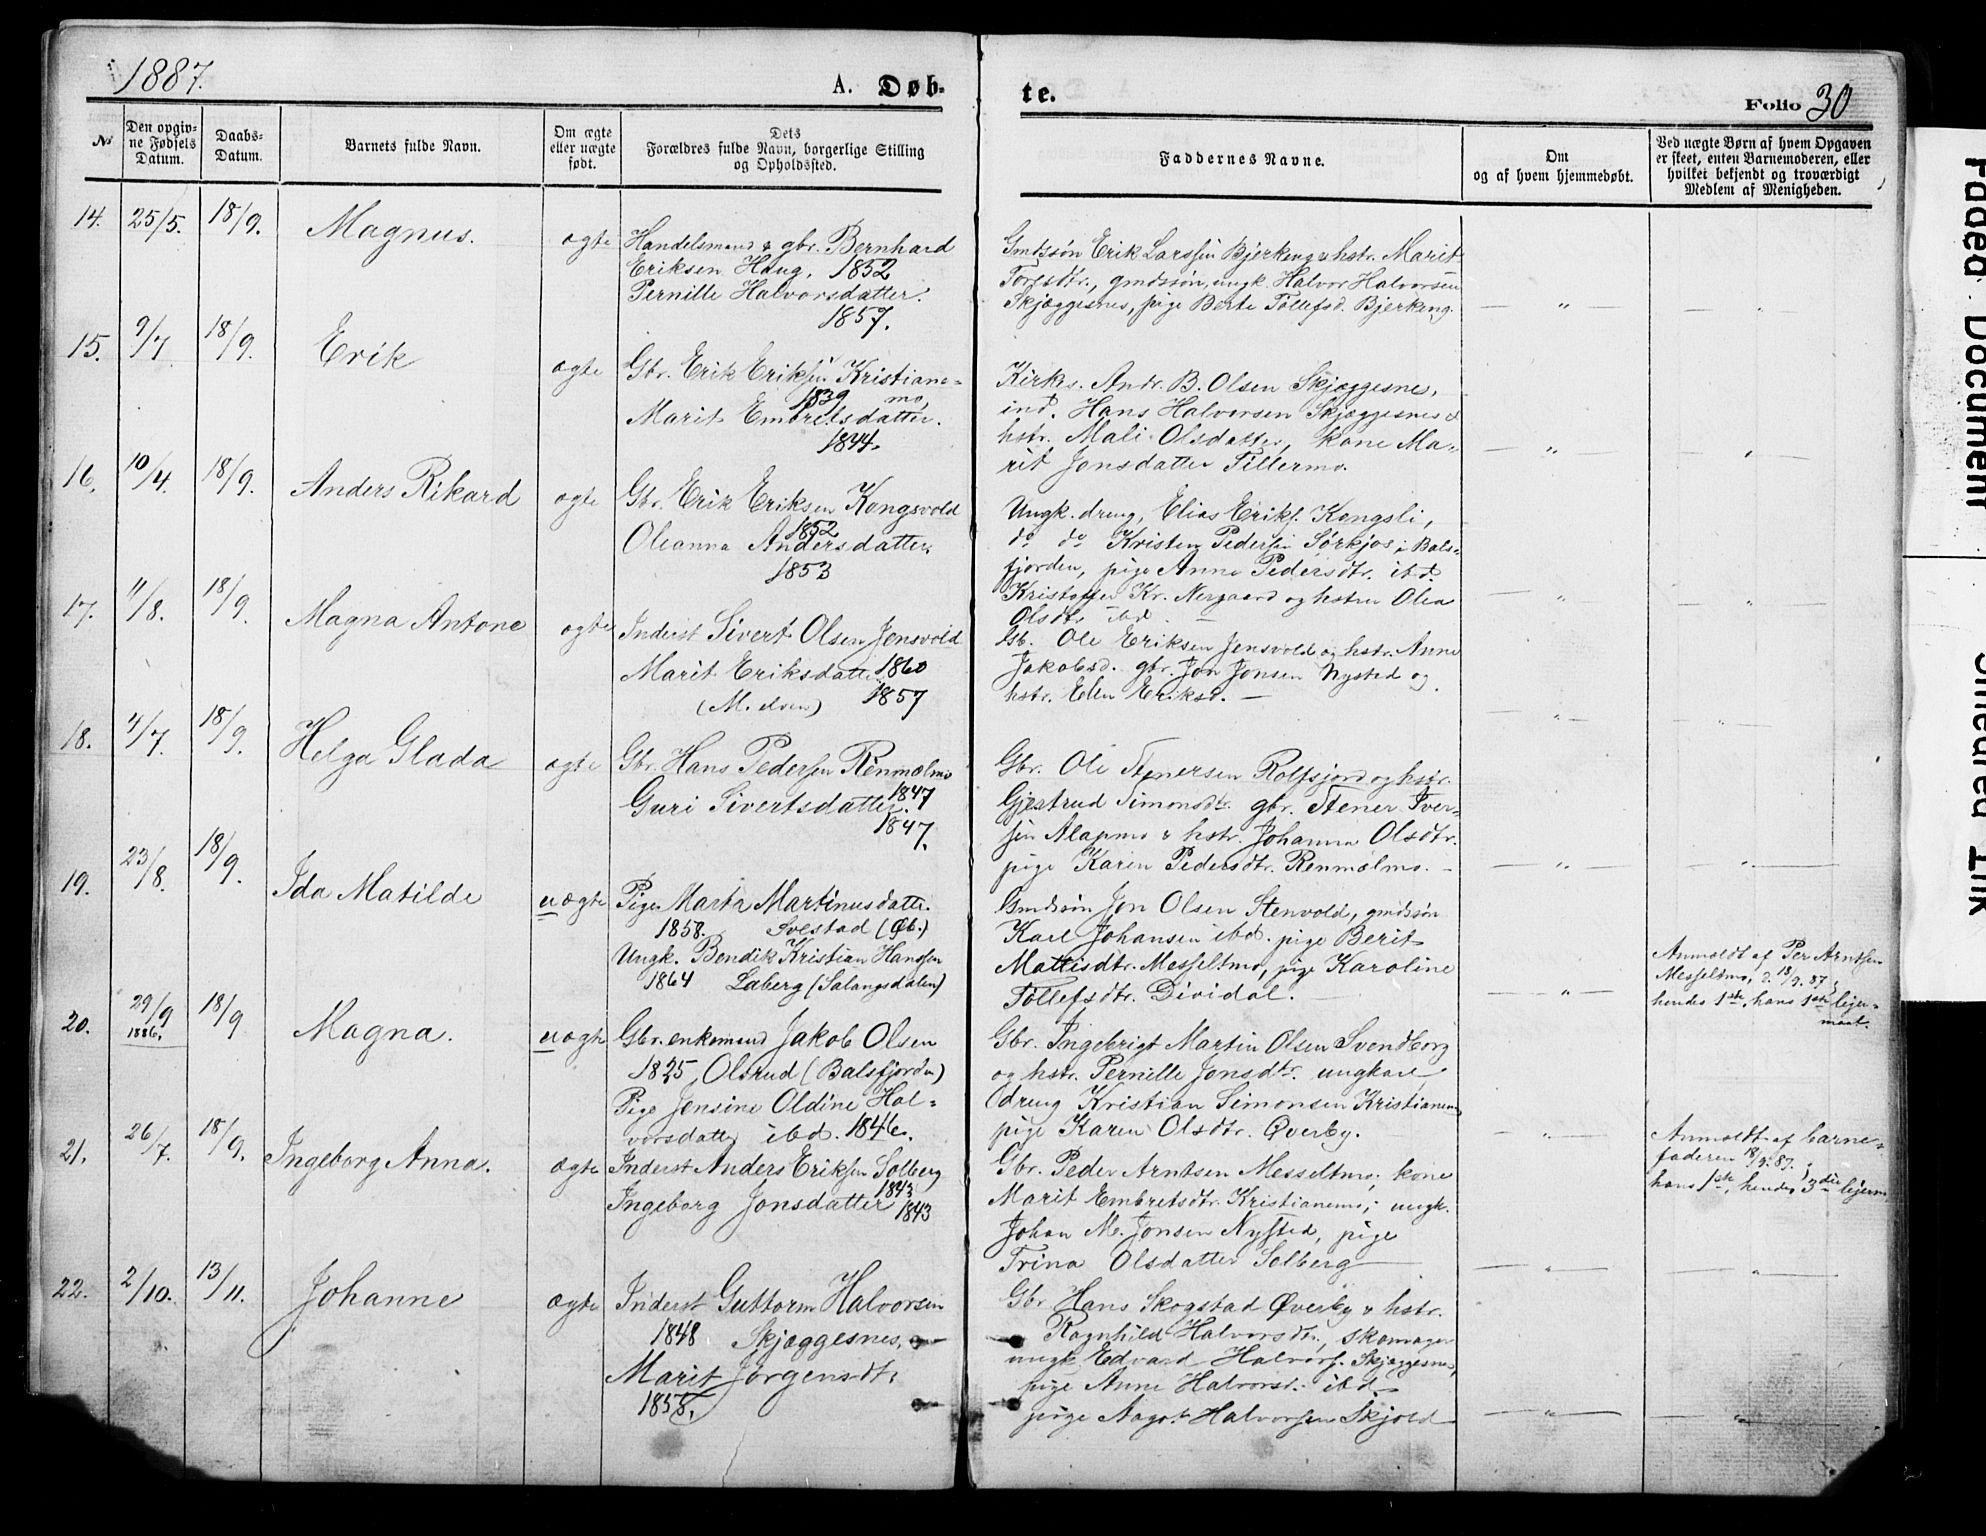 1887.
A. Døb-
te.
Folio 30
№
Den opgiv-
ne Fødsels
Datum.
Daabs-
Datum.
Barnets fulde Navn.
Om ægte
eller uægte
født.
Dets
Forældres fulde Navn, borgerlige Stilling
og Opholdssted.
Faddernes Navne.
Om
og af hvem hjemmedøbt.
Ved uægte Børn af hvem Opgaven
er skeet, enten Barnemoderen, eller
hvilket bekjendt og troværdigt
Medlem af Menigheden.
14. 25/5. 18/9. Magnus. ægte
Handelsmand & gbr. Bernhard
Eriksen Haug. 1852
Pernille Halvorsdatter.
1857.
Gmdssøn Erik Larssen Bjerkeng & hstr. Marit
Tolfsdtr., gmdssøn, ungk. Halvor Halvorsen
Skjæggesnes, pige Berte Tollefsd. Bjerkeng.
15. 9/7 18/9. Erik ægte
Gbr. Erik Eriksen Kristiane-
1839 mo,
Marit Embretsdatter.
1844.
Kirkes. Andr. B. Olsen Skjæggesnes,
ind. Hans Halvorsen Skjæggesnes &
hstr. Mali Olsdatter, kone Ma-
rit Jonsdatter Fillermo.
16. 10/4. 18/9. Anders Rikard ægte
Gbr. Erik Eriksen Kongsvold
1852
Oleanna Andersdatter.
1853
Ungk. dreng, Elias Eriks. Kongsli,
do do Kristen Pedersen Sørkjos i Bals-
fjorden, pige Anne Pedersdtr. ibd.
Kristoffer Kr. Nergaard og hstru Olea
Olsdtr. ibd. —
17. 11/8. 18/9. Magna Antone ægte
Inderst Sivert Olsen Jensvold
Marit Eriksdatter 1860
(M. elven) 1857
Gb. Ole Eriksen Jensvold og hstr. Anne
Jakobsd. gbr. Jon Jonsen Nysted og
hstr. Elen Eriksd. —
18. 4/7. 18/9. Helga Glada ægte
Gbr. Hans Pedersen Renmælmo
1847
Guri Sivertsdatter.
1847.
Gbr. Ole Stenersen Rolfsjord og hstr.
Gjertrud Simonsdtr. gbr. Stener Iver-
sen Alapmo & hstr. Johanna Olsdtr.
pige Karen Pedersdtr. Renmælmo. —
19. 23/8. 18/9. Ida Matilde uægte
Pige Marta Martinusdatter
1858. Svestad (Øb.)
Ungk. Bendik Kristian Hanssen
1864 Laberg (Salangsdalen)
Gmdssøn Jon Olsen Stenvold, gmdssøn
Karl Johansen ibd. pige Berit
Mattisdtr. Messeltmo, pige Karoline
Tollefsdtr. Dividal. —
Anmeldt af Per Arntsen
Messeltmo, d. 18/9. 87;
hendes 1ste, hans 1ste leier-
maal.
20. 29/9 1886. 18/9 Magna. uægte
Gbr. enkemand Jakob Olsen
1825, Olsrud (Balsfjorden)
Pige Jensine Oldine Hal-
vorsdatter ibd. 1846.
Gbr. Ingebrigt Martin Olsen Svendborg
og hstr. Pernille Jonsdtr. ungkarl
dreng Kristian Simonsen Kristianemo,
pige Karen Olsdtr. Øverby.
Anmeldt af barne-
faderen 18/9. 87.;
hans 1ste, hendes 3die leierm.
21. 26/7. 18/9. Ingeborg Anna. ægte
Inderst Anders Eriksen Solberg
1843
Ingeborg Jonsdatter 1843
Gbr. Peder Arntsen Messeltmo; kone
Marit Embretsdtr. Kristianemo; ungk.
Johan M. Jonsen Nysted, pige
Trina Olsdatter Solberg
22. 2/10. 13/11. Johanne ægte
Inderst Guttorm Halvorsen
1848 Skjæggesnes,
Marit Jørgensdtr.
Gbr Hans Skogstad Øverby & hstr.
Ragnhild Halvorsdtr., skomager
ungk Edvard Halvors. Skjæggesnes,
pige Anne Halvorsd. ibd.
pige Aagot Halvorsen Skjold
Faded Document
Smeared Ink